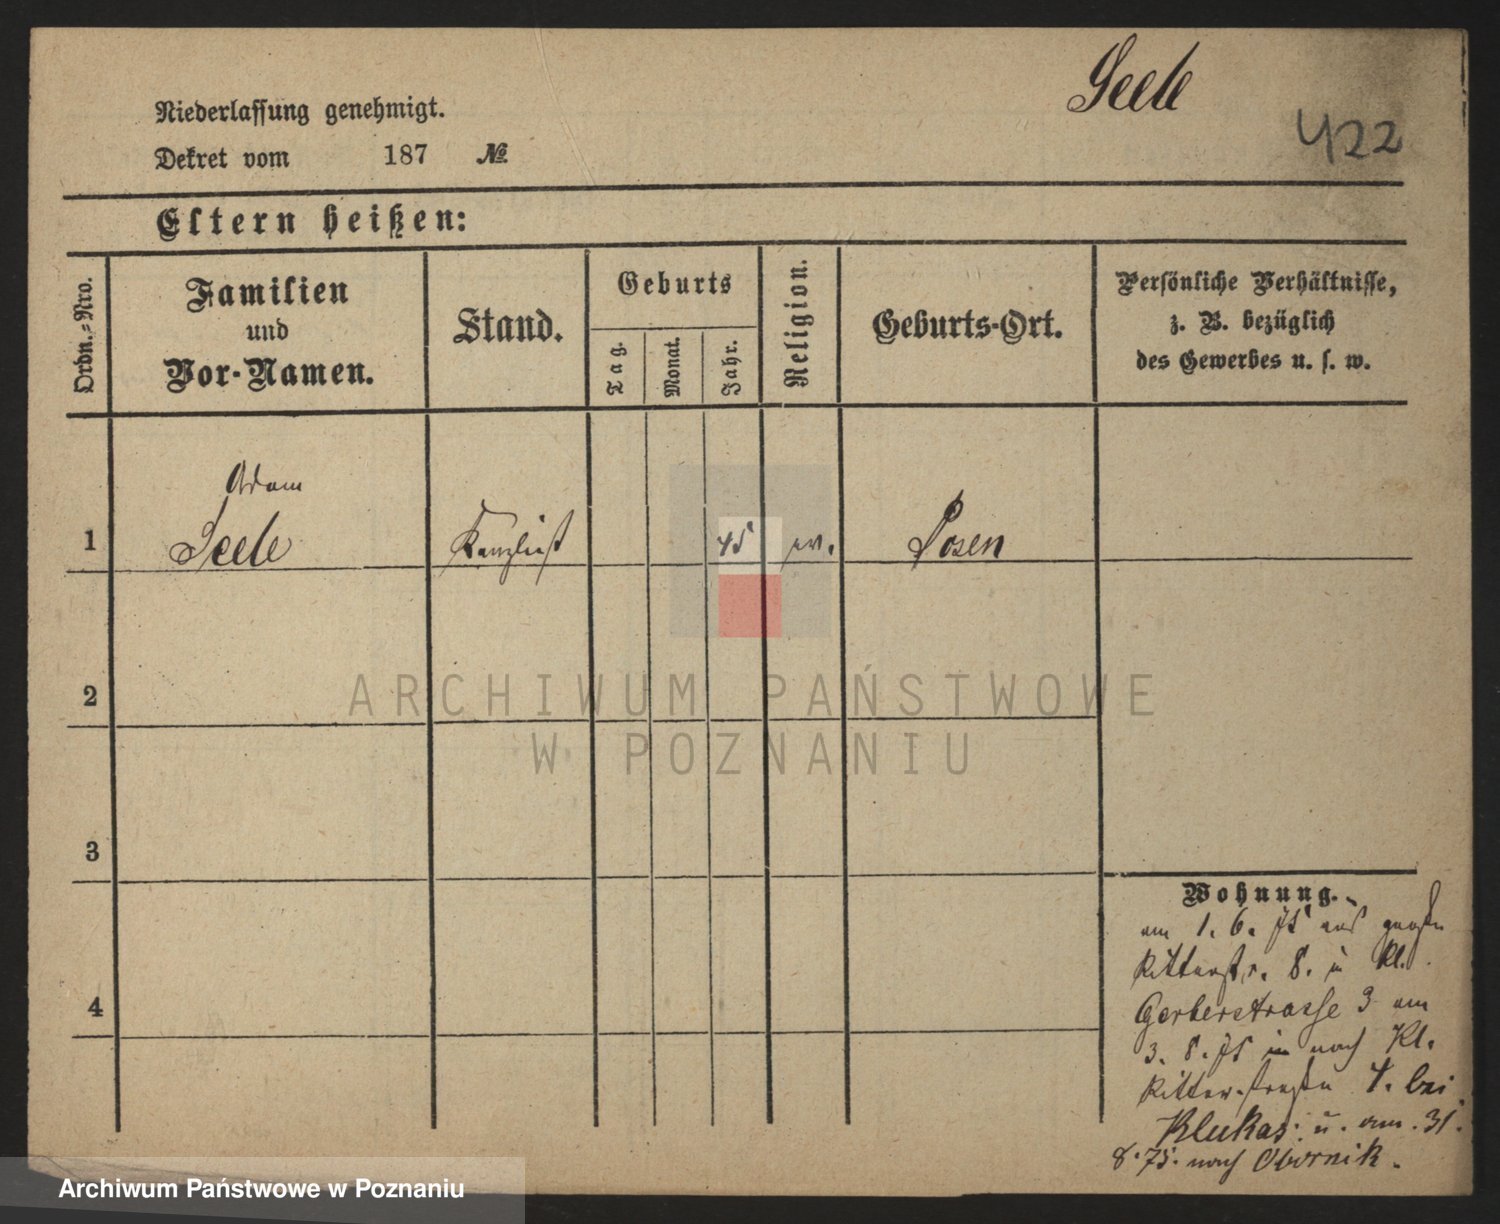 Seele
422
Niederlassung genehmigt.
Dekret vom 187 №
Eltern heißen:
Ordn.-Nro.
Familien
und
Vor-Namen.
Stand.
Geburts
Tag.
Monat.
Jahr.
Religion.
Geburts-Ort.
Persönliche Verhältnisse,
z. B. bezüglich
des Gewerbes u. s. w.
Adam
1 Seele Kanzlist 45 ev. Posen
2
3
4
ARCHIWUM PAŃSTWOWE
W POZNANIU
Wohnung.
am 1. 6. 75 aus
Ritterstr. 8. in Kl.
Gerberstrasse 3 am
3. 8. 75 nach Kl.
Ritterstraße 4. bei
Klukas u. am 31.
8. 75. nach Obornik.
Archiwum Państwowe w Poznaniu